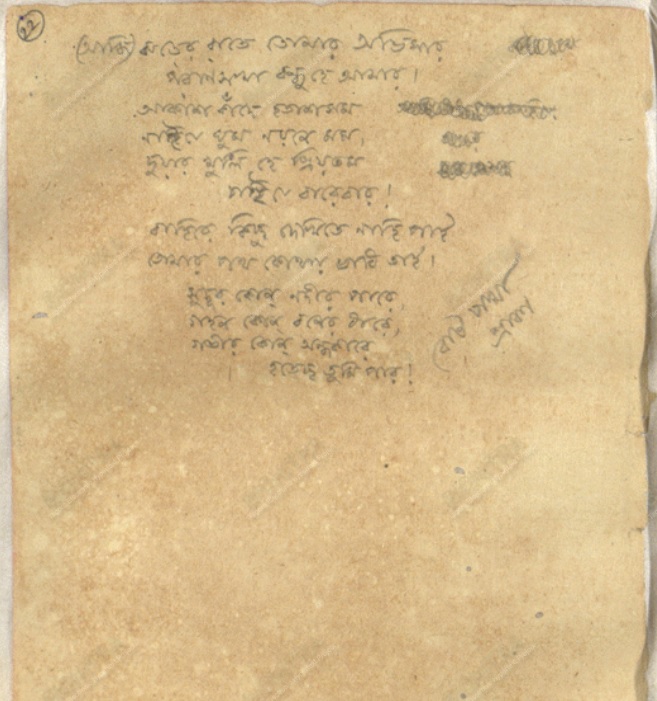 ২২
(আজি) ঝড়ের রাতে তোমার অভিসার
পরাণসখা বন্ধু হে আমার।
আকাশ কাঁদে হতাশসম
নাইযে ঘুম নয়নে মম,
দুয়ার খুলি হে প্রিয়তম
চাই যে বারেবার!
বাহিরে কিছু দেখিতে নাহি পাই
তোমার পথ কোথায় ভাবি তাই।
সুদূর কোন্ নদীর পারে,
গহন কোন্ বনের ধারে,
গভীর কোন্ অন্ধকারে
হতেছ তুমি পার!
বোট পদ্মা
শ্রাবণ